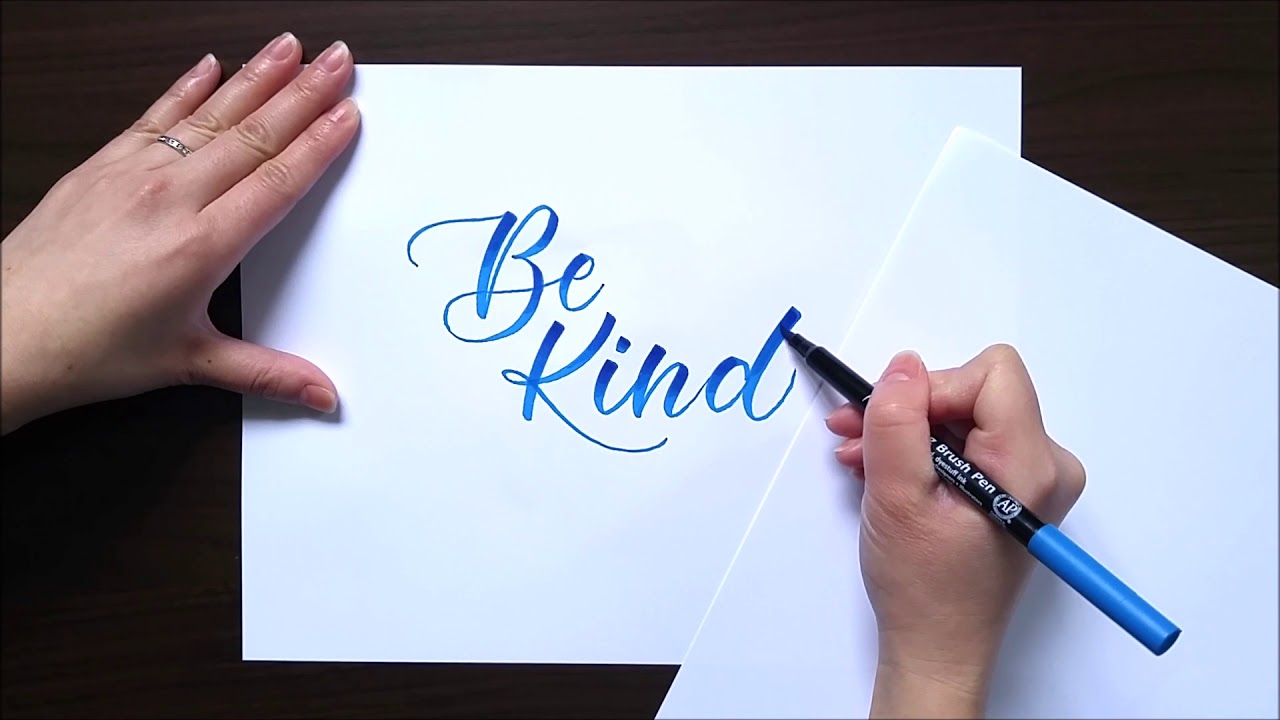 Be
Kind
Brush Pen
dyestuff ink
AP